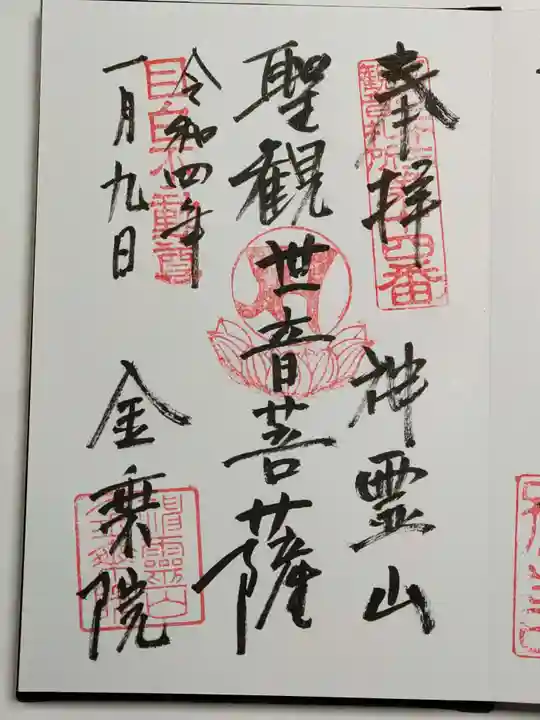 奉拝
神霊山
聖観世音菩薩
令和四年
一月九日
金乗院
目白不動尊